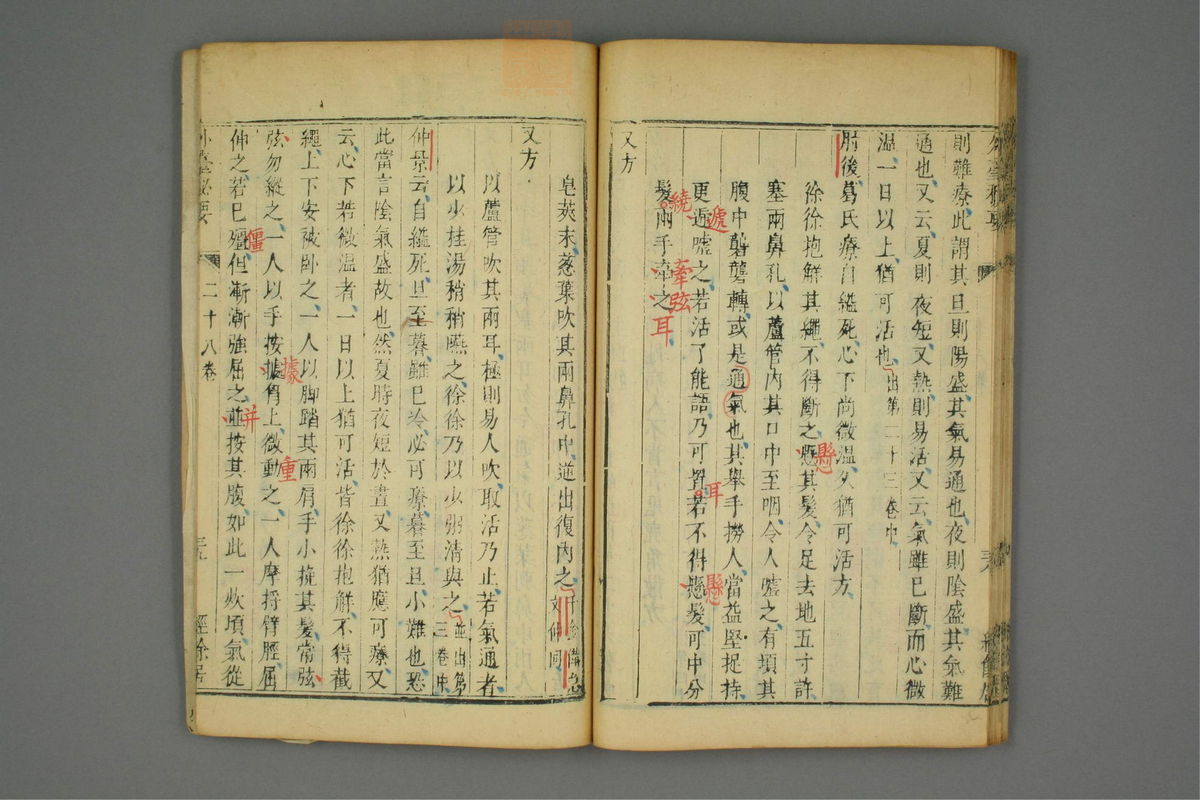 則難療此謂其旦則陽盛其氣易通也夜則陰盛其氣難
通也又云夏則夜短又熱則易活又云氣雖巳斷而心微
温一日以上猶可活也出第二十三卷中
肘後葛氏療自縊死心下尚微温久猶可活方
徐徐抱解其繩不得斷之懸其髮令足去地五寸許
塞兩鼻孔以蘆管內其口中至咽令人噓之有頃其
腹中礱礱轉或是通氣也其舉手撈人當益堅捉持
更遞噓之若活了能語乃可置若不得懸髮可中分
髮兩手牽之
又方
皂莢末葱葉吹其兩鼻孔中逆出復內之千金備急文仲同
又方
以蘆管吹其兩耳極則易人吹取活乃止若氣通者
以少桂湯稍稍嚥之徐徐乃以少粥清與之並出第三卷中
仲景云自縊死旦至暮雖巳冷必可療暮至旦小難也恐
此當言陰氣盛故也然夏時夜短於晝又熱猶應可療又
云心下若微温者一日以上猶可活皆徐徐抱解不得截
繩上下安被臥之一人以脚踏其兩肩手小挽其髮常弦
弦勿縱之一人以手按據胷上微動之一人摩捋臂脛屈
伸之若巳殭但漸漸強屈之並按其腹如此一炊頃氣從
外臺秘要
二十八卷
經餘居
遞
繞
牽弦
耳
懸
耳
懸
僵
據
重
并